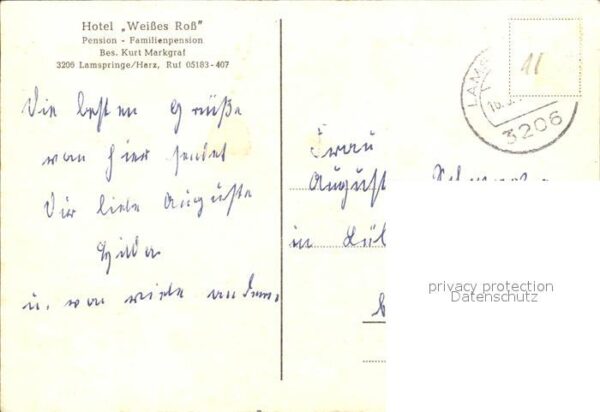 Hotel „Weißes Roß"
Pension - Familienpension
Bes. Kurt Markgraf
3206 Lamspringe/Harz, Ruf 05183-407
Die besten Grüße
von hier sendet
Dir liebe Auguste
Hilda
u. von vielen andern.
Frau
August
in
3206
18
privacy protection
Datenschutz